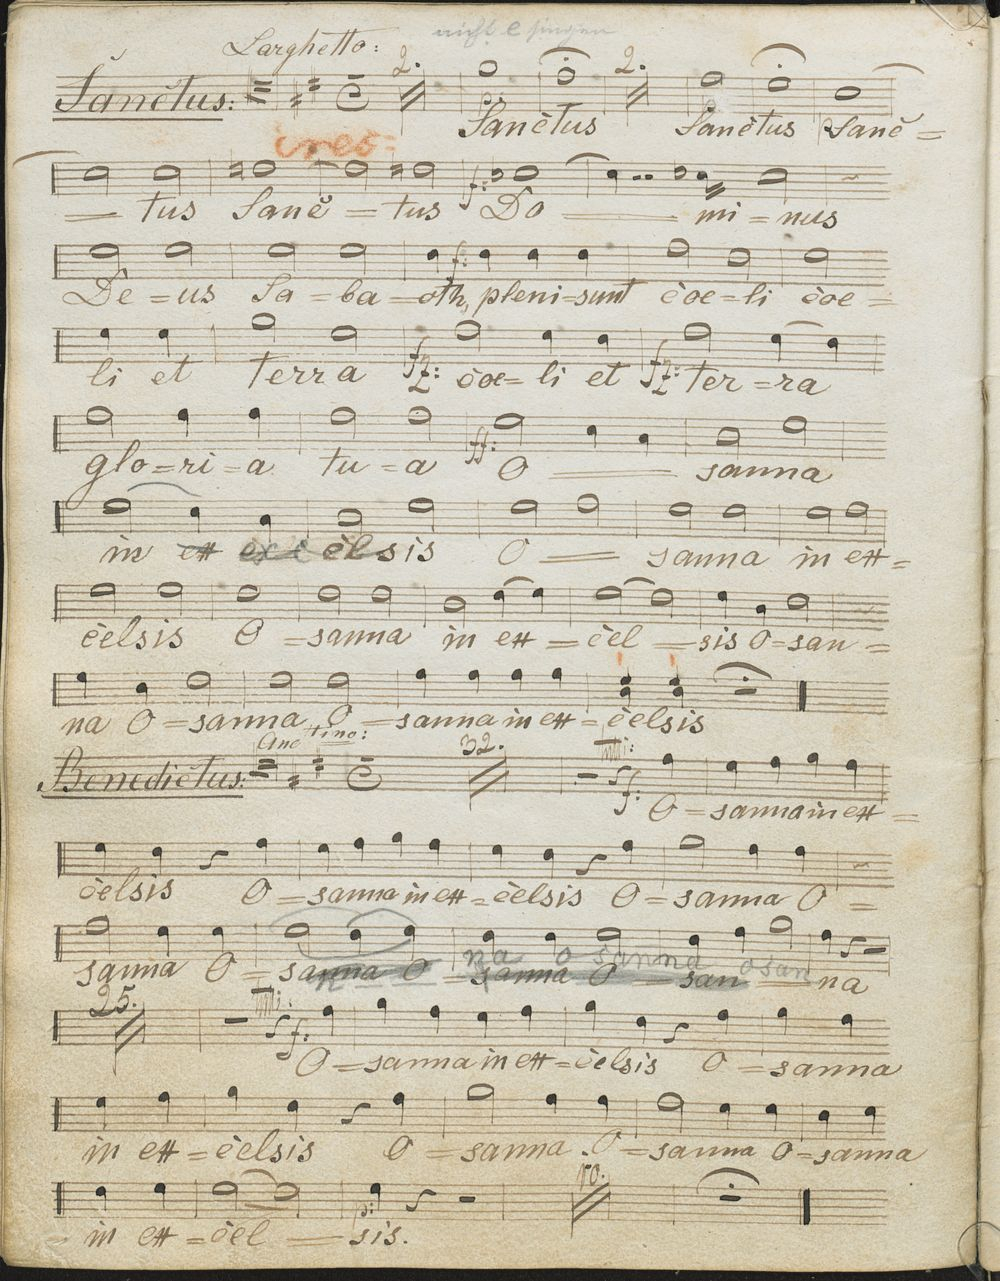 nicht e singen
Larghetto:
Sanctus: 2. Sanctus 2. Sanctus Sanc =
cres:
— tus Sanc — tus f: Do — mi = nus
De = us Sa = ba — oth, f: pleni = sunt coe = li coe =
li et terra fz: coe = li et fz: ter = ra
glo = ri = a tu = a ff: O — sanna
in ex excelsis O — sanna in ex =
celsis O = sanna in ex = cel — sis O = san =
na O = sanna O = sanna in ex = celsis
Andtino:
Benedictus: 32. tutti: f: O = sanna in ex =
celsis O = sanna in ex = celsis O = sanna O =
na O sanna osan
sanna O = sanna O = sanna O = san — na
25. tutti: f: O = sanna in ex = celsis O = sanna
in ex = celsis O = sanna O = sanna O = sanna
in ex = cel — p: sis. 10.